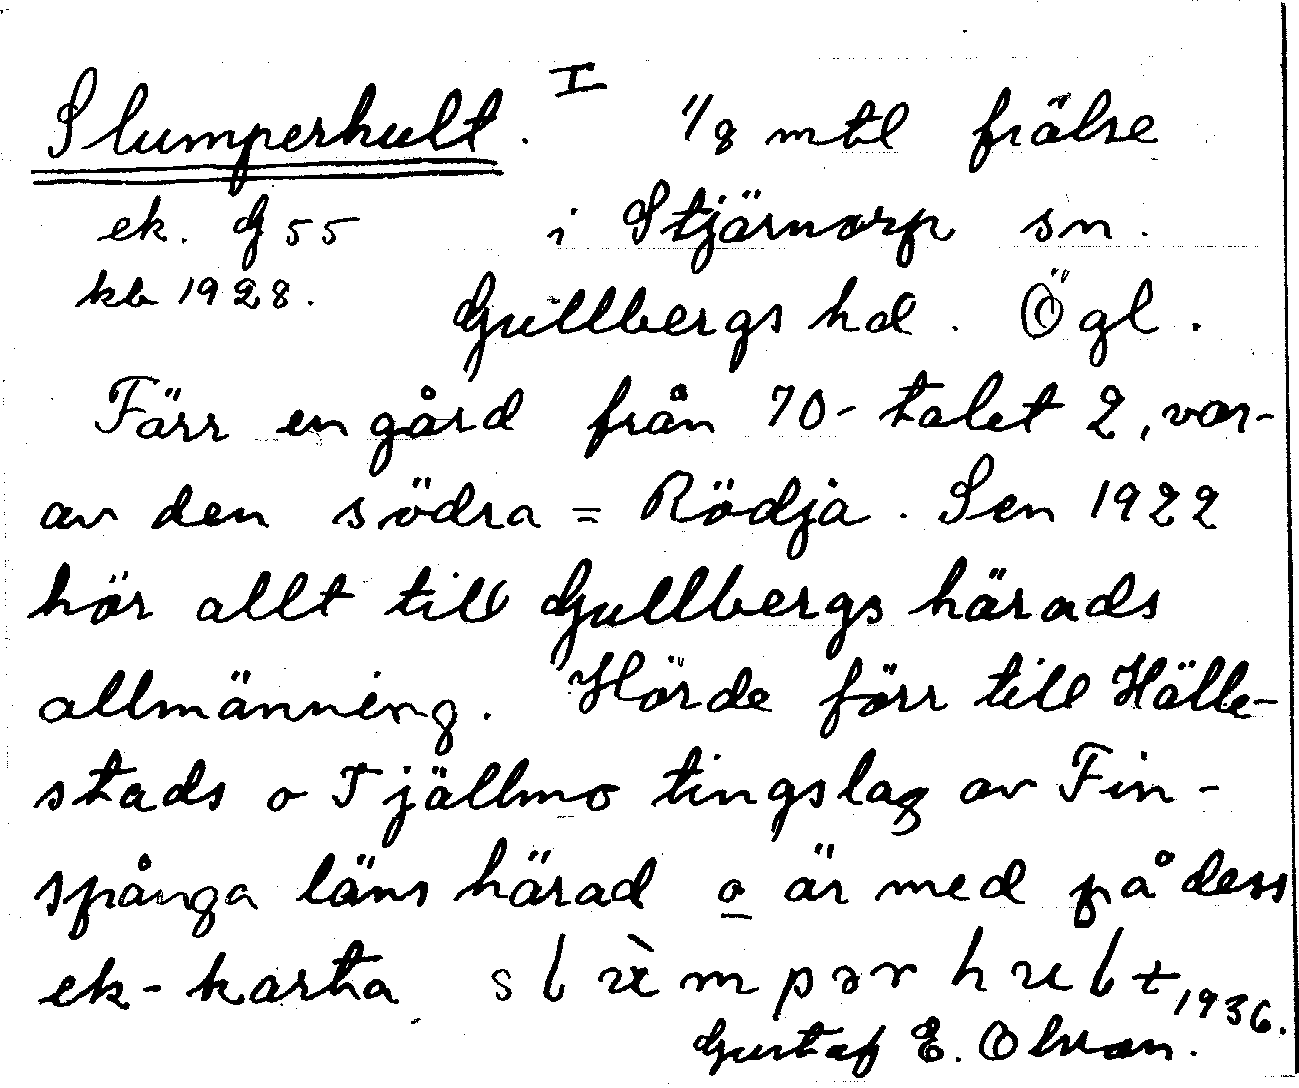 Slumperhult. I 1/8 mtl frälse
ek. G 55 i Stjärnorp sn.
kb 1928. Gullbergs hd. Ögl.
Färr en gård från 70-talet 2, var-
av den södra = Rödja. Sen 1922
hör allt till Gullbergs härads
allmänning. Hörde förr till Hälle-
stads o Tjällmo tingslag av Fin-
spånga läns härad o är med på dess
ek-karta
1936.
Gustaf E. Olsson.